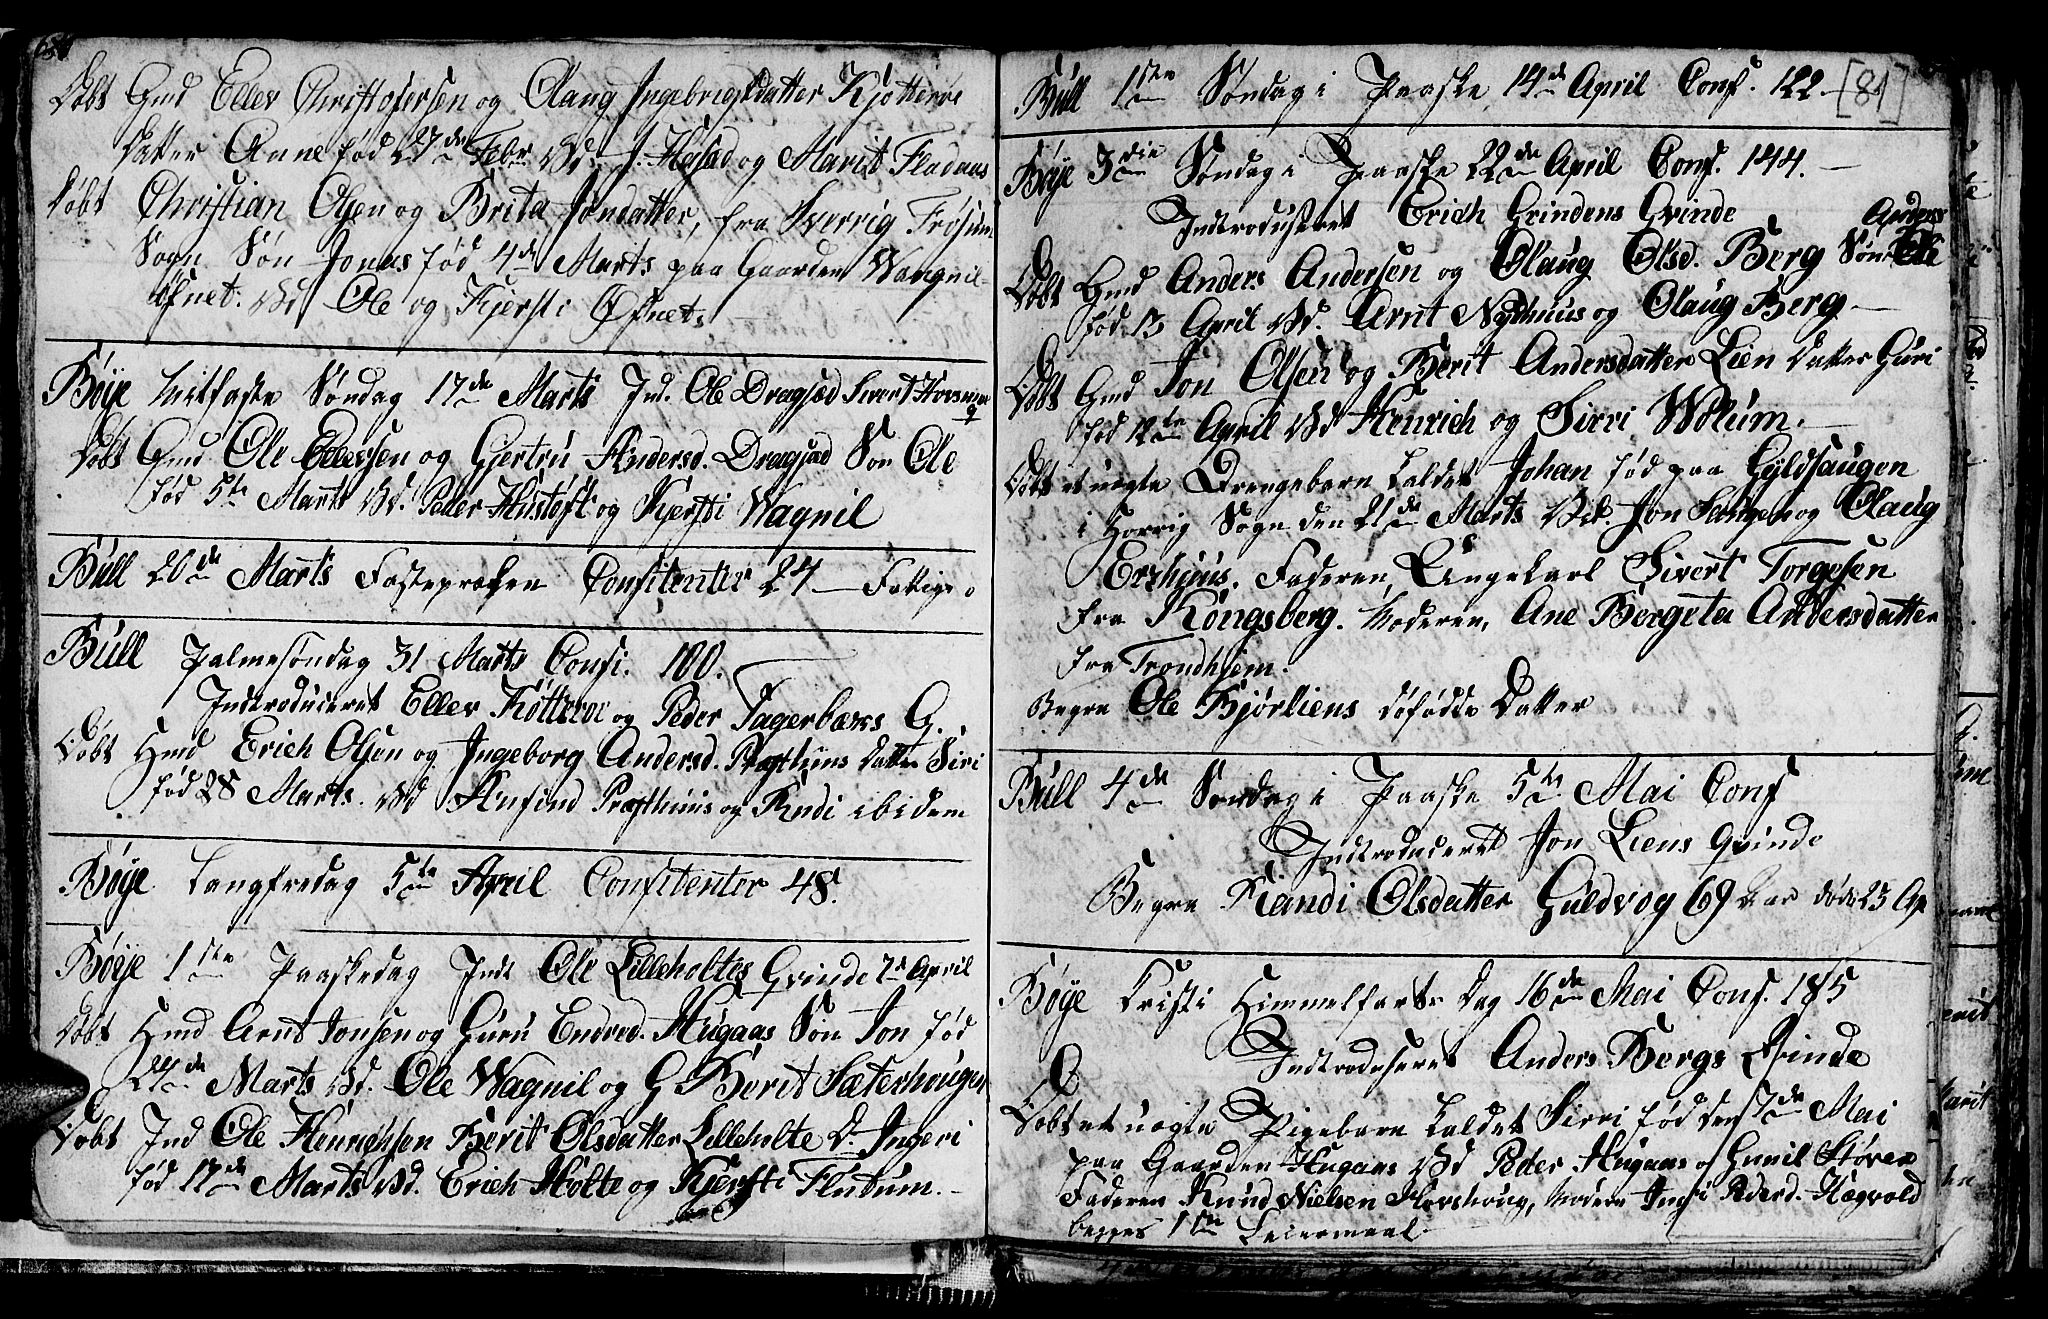 Døbt Gmd Ellev Christofersen og Olaug Ingebrigtsdatter Kjøtterøe
Datter Anne fød 27de Febr. Vd. J. Hofstad og Marit Flaaaas
Døbt Christian Olsen og Brita Jonsdatter, fra Sverrig Frøsum
Sogn Søn Jonas fød 4de Marts paa Gaarden Wagnil
Øfnet. Vd Ole og Kjersti Øfnet.
Bøye Mitfaste Søndag 17de Marts Ind. Ole Dragsæd Sivert Hovsmoe
Døbt Gmd Ole Ellevsen og Gjertru Andersd. Dragsæd Søn Ole
fød 5te Marts Vd. Peder Hustoft og Kjersti Wagnil
Bull 20de Marts Fastepræken Confitenter 24 Fattige
Bull Palmesøndag 31 Marts Conf. 100.
Indtroduceret Ellev Køtterøe og Peder Fagerbæks Q.
Døbt Hmd Erich Olsen og Ingeborg Andersd. Præsthuus Datter Siri
fød 28 Marts. Vd Anfind Præsthuus og Randi ibidem
Bøye Langfredag 5te April Confitenter 48.
Bøye 1ste Paaskedag Indt Ole Lilleholtes Qvinde 7de April
Døbt Hmd Arnt Jonsen og Guru Endresd. Hugaas Søn Jon fød
24de Marts Vd. Ole Wagnil og G Berit Sæterhougen
Døbt Ind Ole Henrichsen Berit Olsdatter Lilleholte D. Ingeri
fød 17de Marts Vd. Erich Holte og Kjersti Fludum.
[81]
Bull 1ste Søndag i Paaske 14de April Conf. 122.
Bøye 3die Søndag i Paaske 22de April Conf. 144.
Indtroduseret Erich Grindens Qvinde
Anders
Døbt Gmd Anders Andersen og Olaug Olsd. Berg Søn Ole
fød 13 April Vd. Arnt Nyhuus og Olaug Berg
Døbt Gmd Jon Olsen og Berit Andersdatter Lien Datter Guri
fød 12te April Vd Henrich og Sirri Wollum.
Døbt et uægte Drengebarn kaldet Johan fød paa Gyldsaugen
i Horrig Sogn den 21de Marts Vd. Jon Haugen og Olaug
Erzhuus. Faderen, Ungekarl Sivert Torgesen
fra Kongsberg. Moderen, Ane Bergeta Andersdatter
fra Trondhiem.
Begra Ole Bjørliens døfødde Datter
Bull 4de Søndag i Paaske 5te Mai Conf
Indtroduceret Jon Liens Qvinde
Begra Randi Olsdatter Guldvog 69 Aar døde 23 Ap
Bøye Cristi Himmelfarts Dag 16de Mai Conf. 185
Indtroduseret Anders Bergs Qvinde
Døbt et uægte Pigebarn kaldet Sirri fød den 7de Mai
paa Gaarden Hugaas Vd Peder Hugaas og Gunil Støren
Faderen Knud Nielsen Horshoug, Moderen Ingri Pedersd. Hægvold
begges 1ste Leiermaal